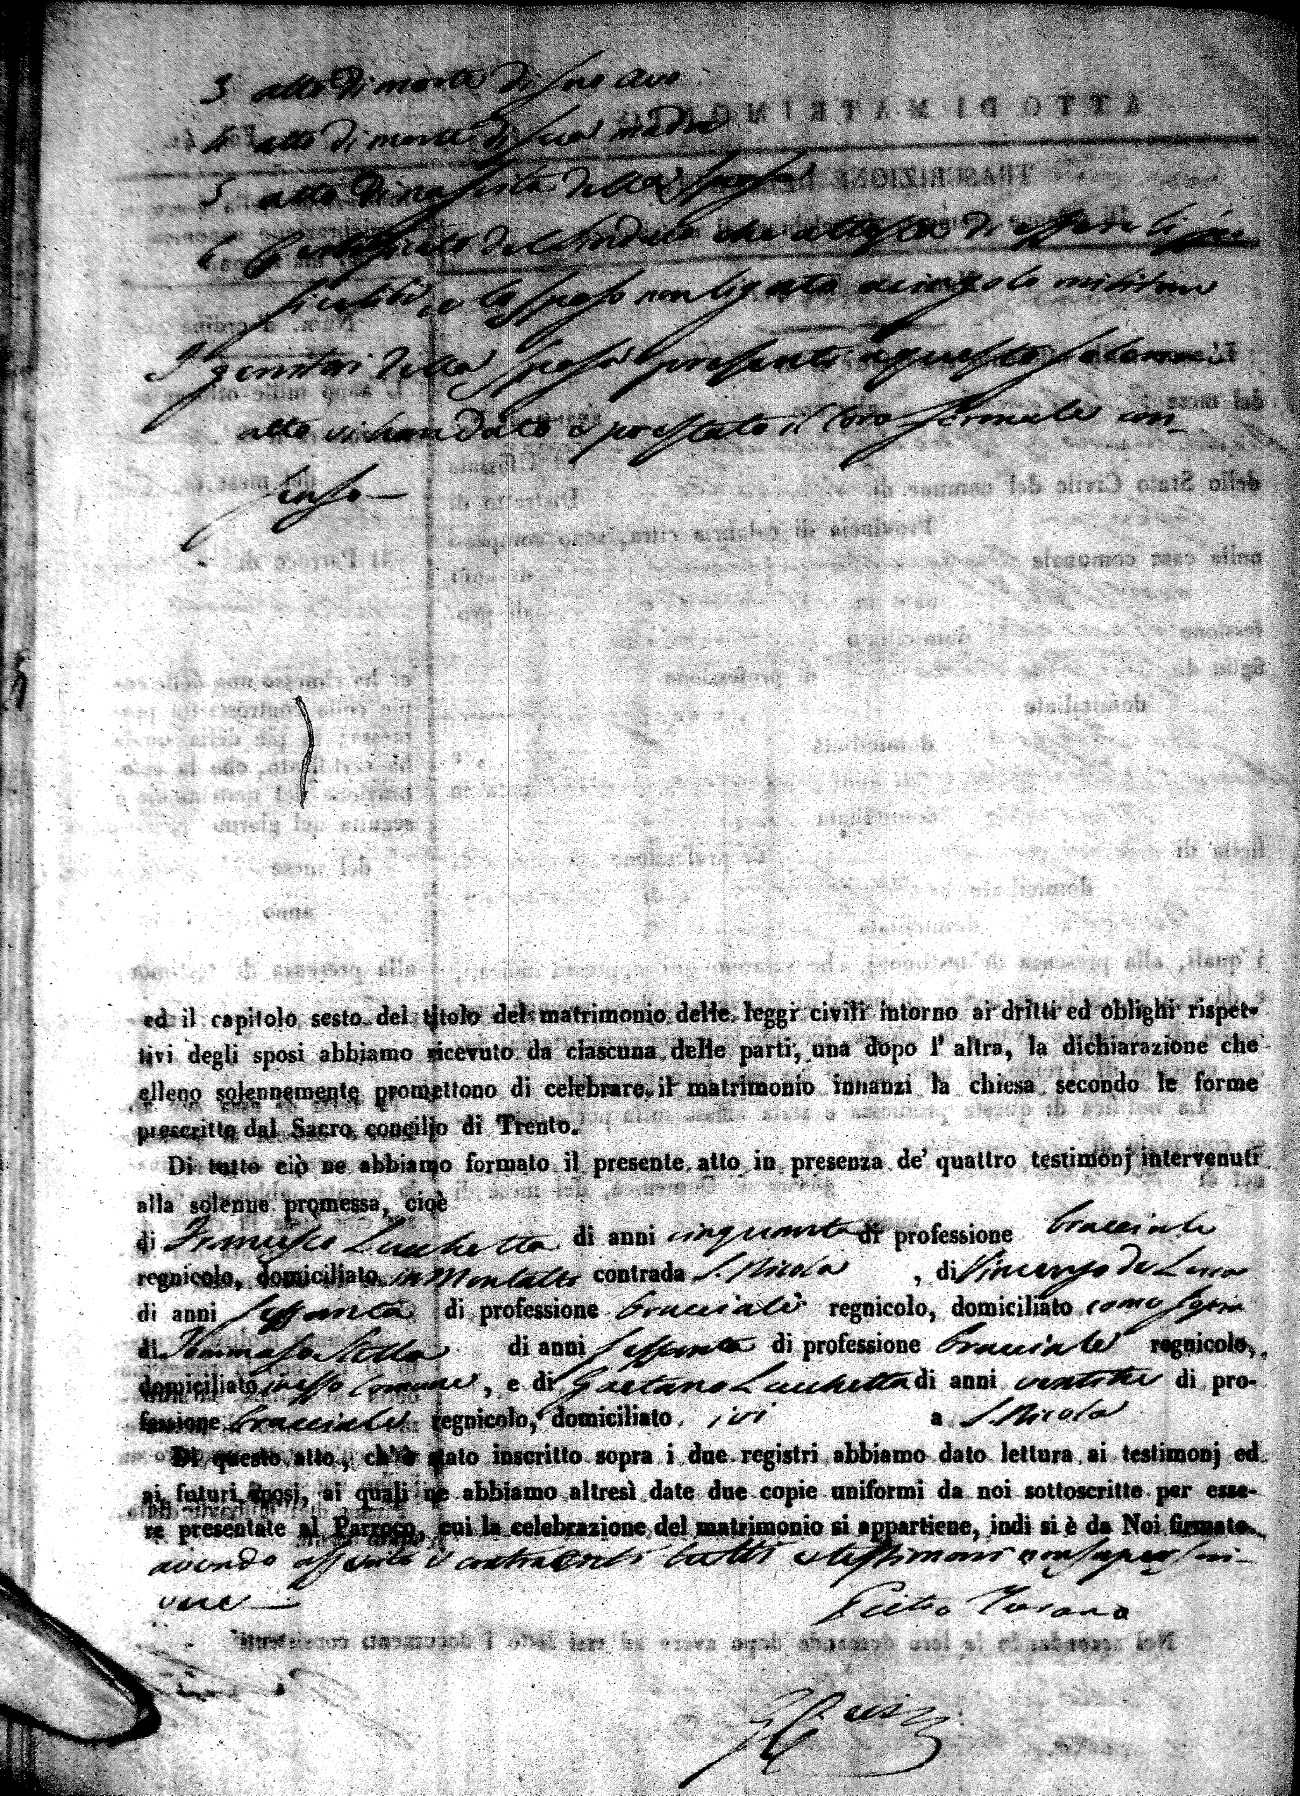 3 atto di morte di suo avo
4 atto di morte di sua madre
5 atto di nascita della sposa
6 Certificato del Sindaco che attesta di essere li
lo sposo non ligato a cingolo militare
I genitori della Sposa presenti a questo solenne
atto vi han dato e prestato il loro formale con-
senso
ed il capitolo sesto del titolo del matrimonio delle leggi civili intorno ai dritti ed oblighi rispet-
tivi degli sposi abbiamo ricevuto da ciascuna delle parti, una dopo l' altra, la dichiarazione che
elleno solennemente promettono di celebrare il matrimonio innanzi la chiesa secondo le forme
prescritte dal Sacro concilio di Trento.
Di tutto ciò ne abbiamo formato il presente atto in presenza de' quattro testimonj intervenuti
alla solenne promessa, cioè
di Francesco Lucchetta di anni cinquanta di professione bracciale
regnicolo, domiciliato in Montalto contrada S. Nicola , di Vincenzo de Luca
di anni sessanta di professione bracciale regnicolo, domiciliato come sopra
di Tommaso Stella di anni sessanta di professione bracciale regnicolo,
domiciliato in esso Comune , e di Gaetano Lucchetta di anni ventotto di pro-
fessione bracciale regnicolo, domiciliato ivi a S. Nicola
Di questo atto, ch'è stato inscritto sopra i due registri abbiamo dato lettura ai testimonj ed
ai futuri sposi, ai quali ne abbiamo altresì date due copie uniformi da noi sottoscritte per esse-
re presentate al Parroco, cui la celebrazione del matrimonio si appartiene, indi si è da Noi firmato
avendo asserito i contraenti tutti e testimoni non saper scri-
vere
Pietro